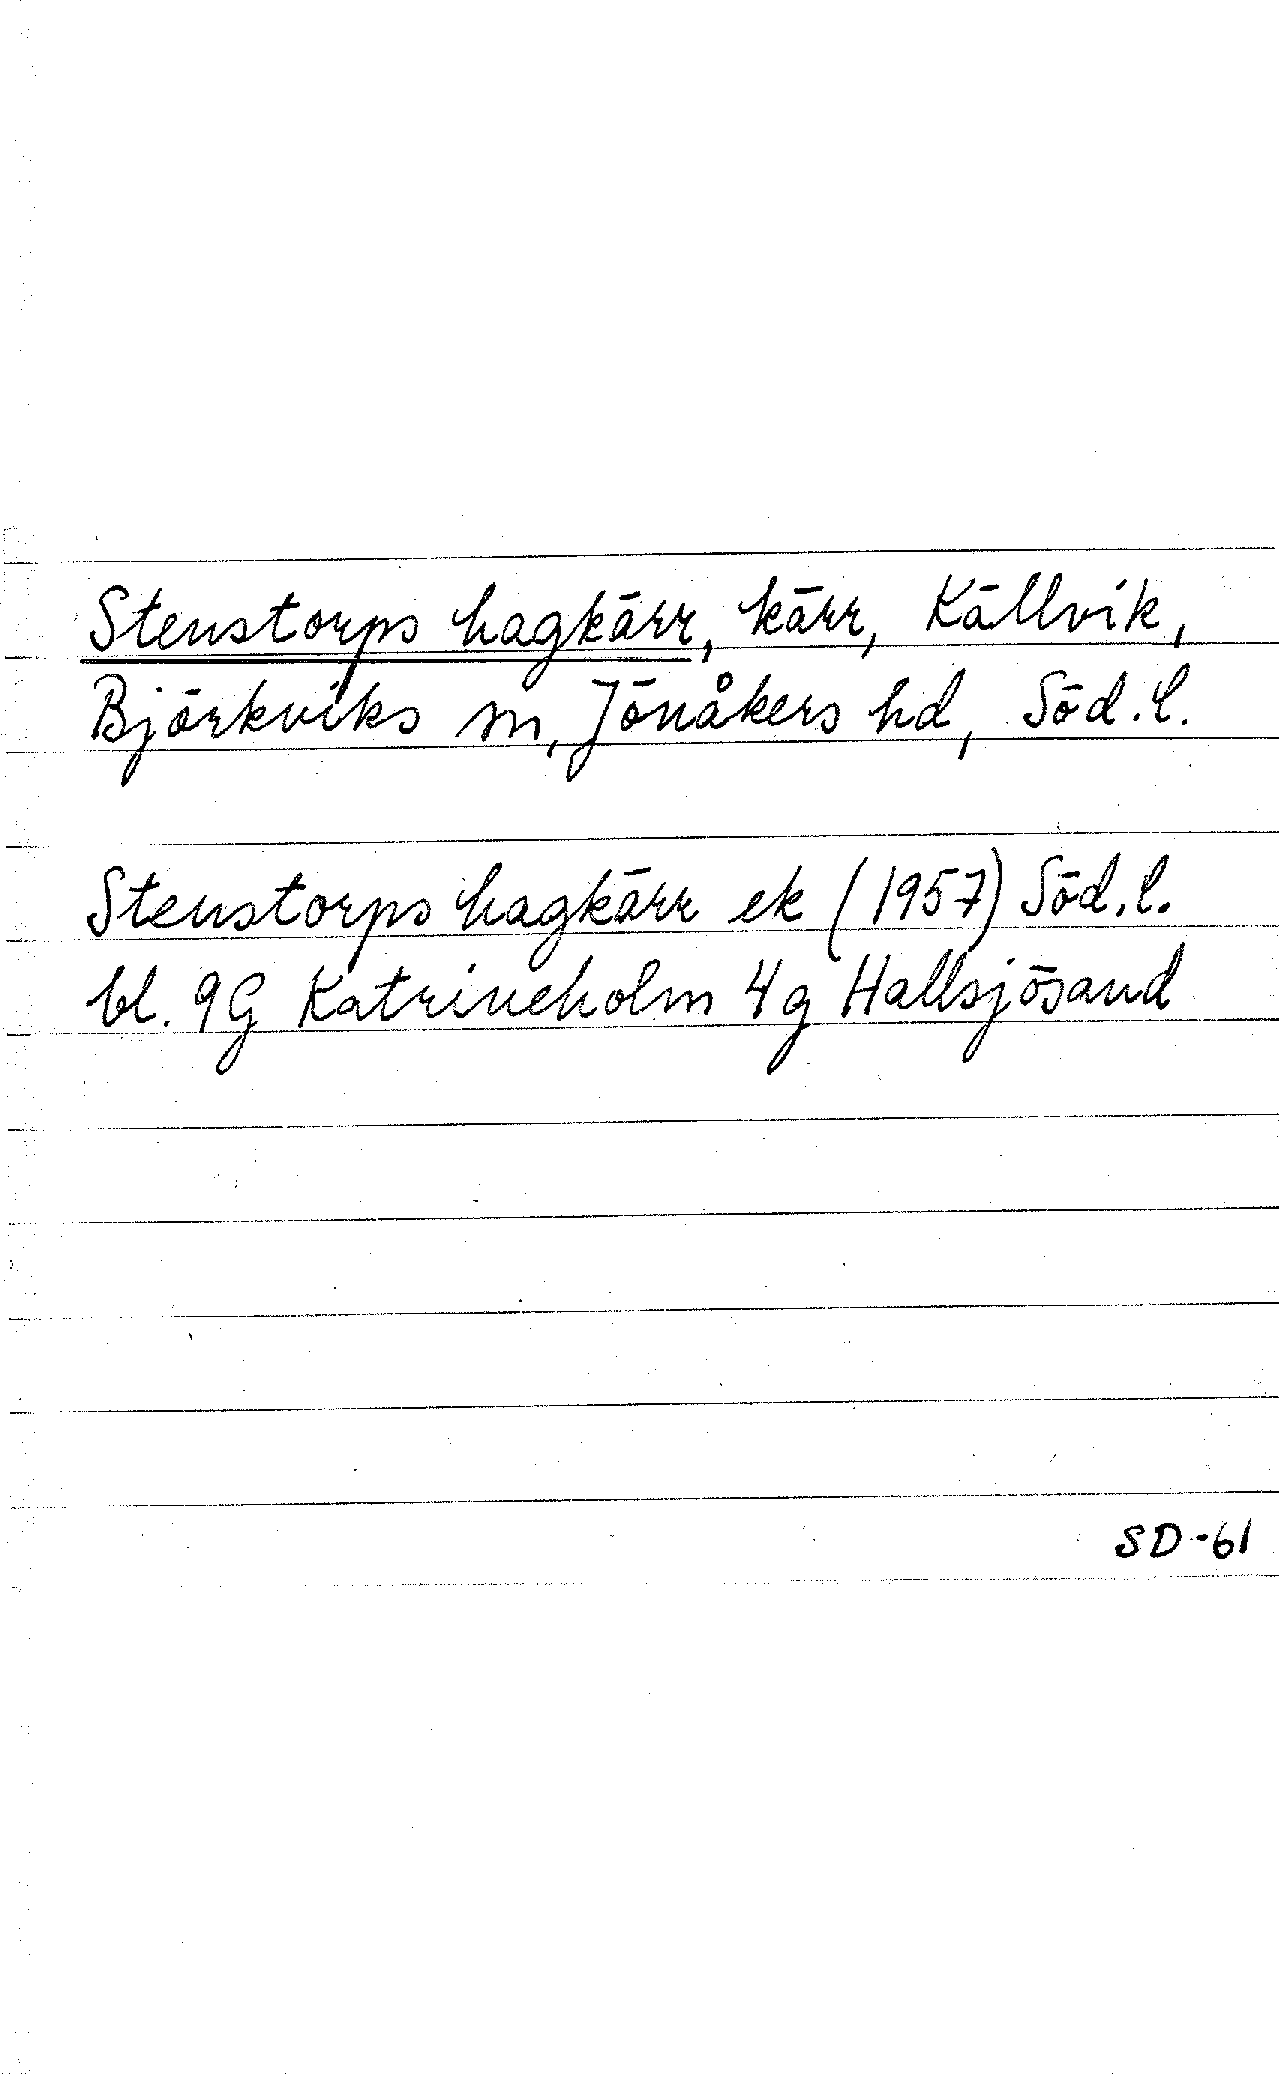 Stenstorps hagkärr, kärr, Källvik,
Björkviks sn, Jönåkers hd, Söd.l.
Stenstorps hagkärr ek (1957) Söd.l.
bl. 9G Katrineholm 4g Hallsjösand
SD-61